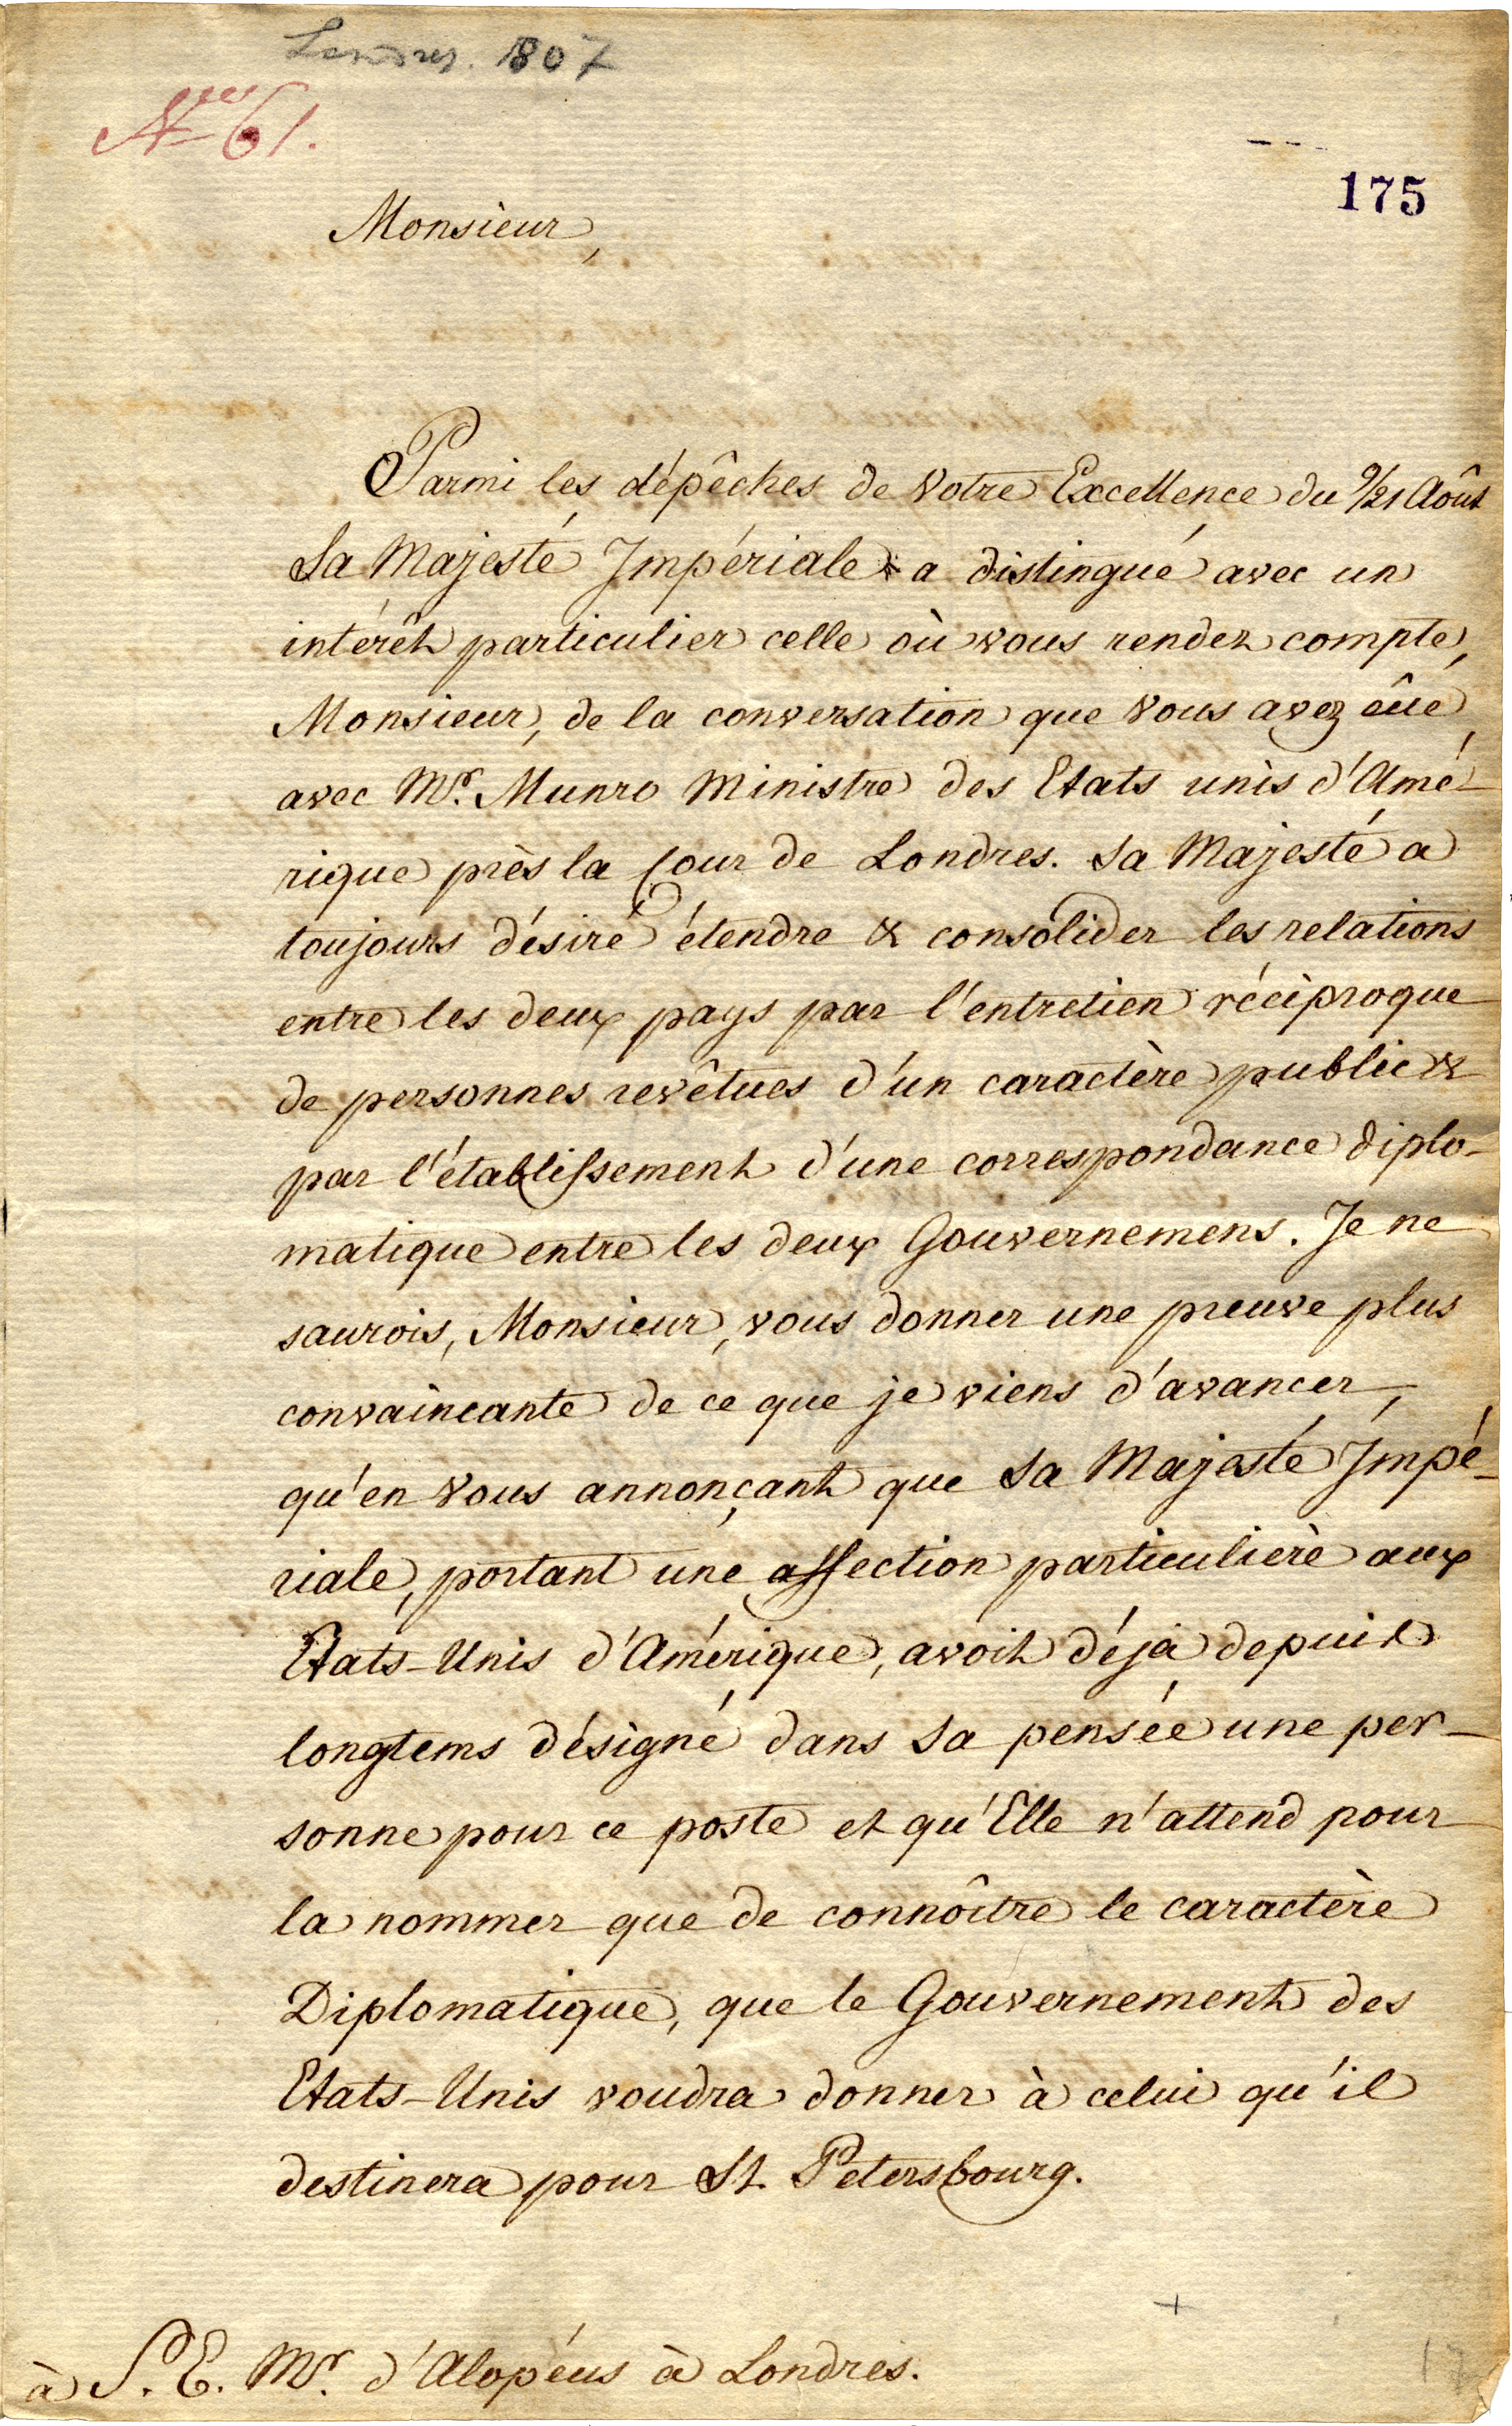 Londres. 1807
No 61.
175
Monsieur,
Parmi les dépêches de Votre Excellence du 9/21 Août
Sa Majesté Impériale a distingué avec un
intérêt particulier celle où vous rendez compte,
Monsieur, de la conversation que Vous avez eûe
avec Mr. Munro Ministre des Etats unis d'Amé-
rique près la Cour de Londres. Sa Majesté a
toujours désiré étendre & consolider les relations
entre les deux pays par l'entretien réciproque
de personnes revêtues d'un caractère public &
par l'établissement d'une correspondance diplo-
matique entre les deux Gouvernemens. Je ne
saurois, Monsieur, vous donner une preuve plus
convaincante de ce que je viens d'avancer,
qu'en Vous annonçant que Sa Majesté Impé-
riale, portant une affection particulière aux
Etats-Unis d'Amérique, avoit déjà depuis
longtems désigné dans Sa pensée une per-
sonne pour ce poste et qu'Elle n'attend pour
la nommer que de connoître le caractère
Diplomatique, que le Gouvernement des
Etats-Unis voudra donner à celui qu'il
destinera pour St. Petersbourg.
à S. E. Mr. d'Alopéus à Londres.